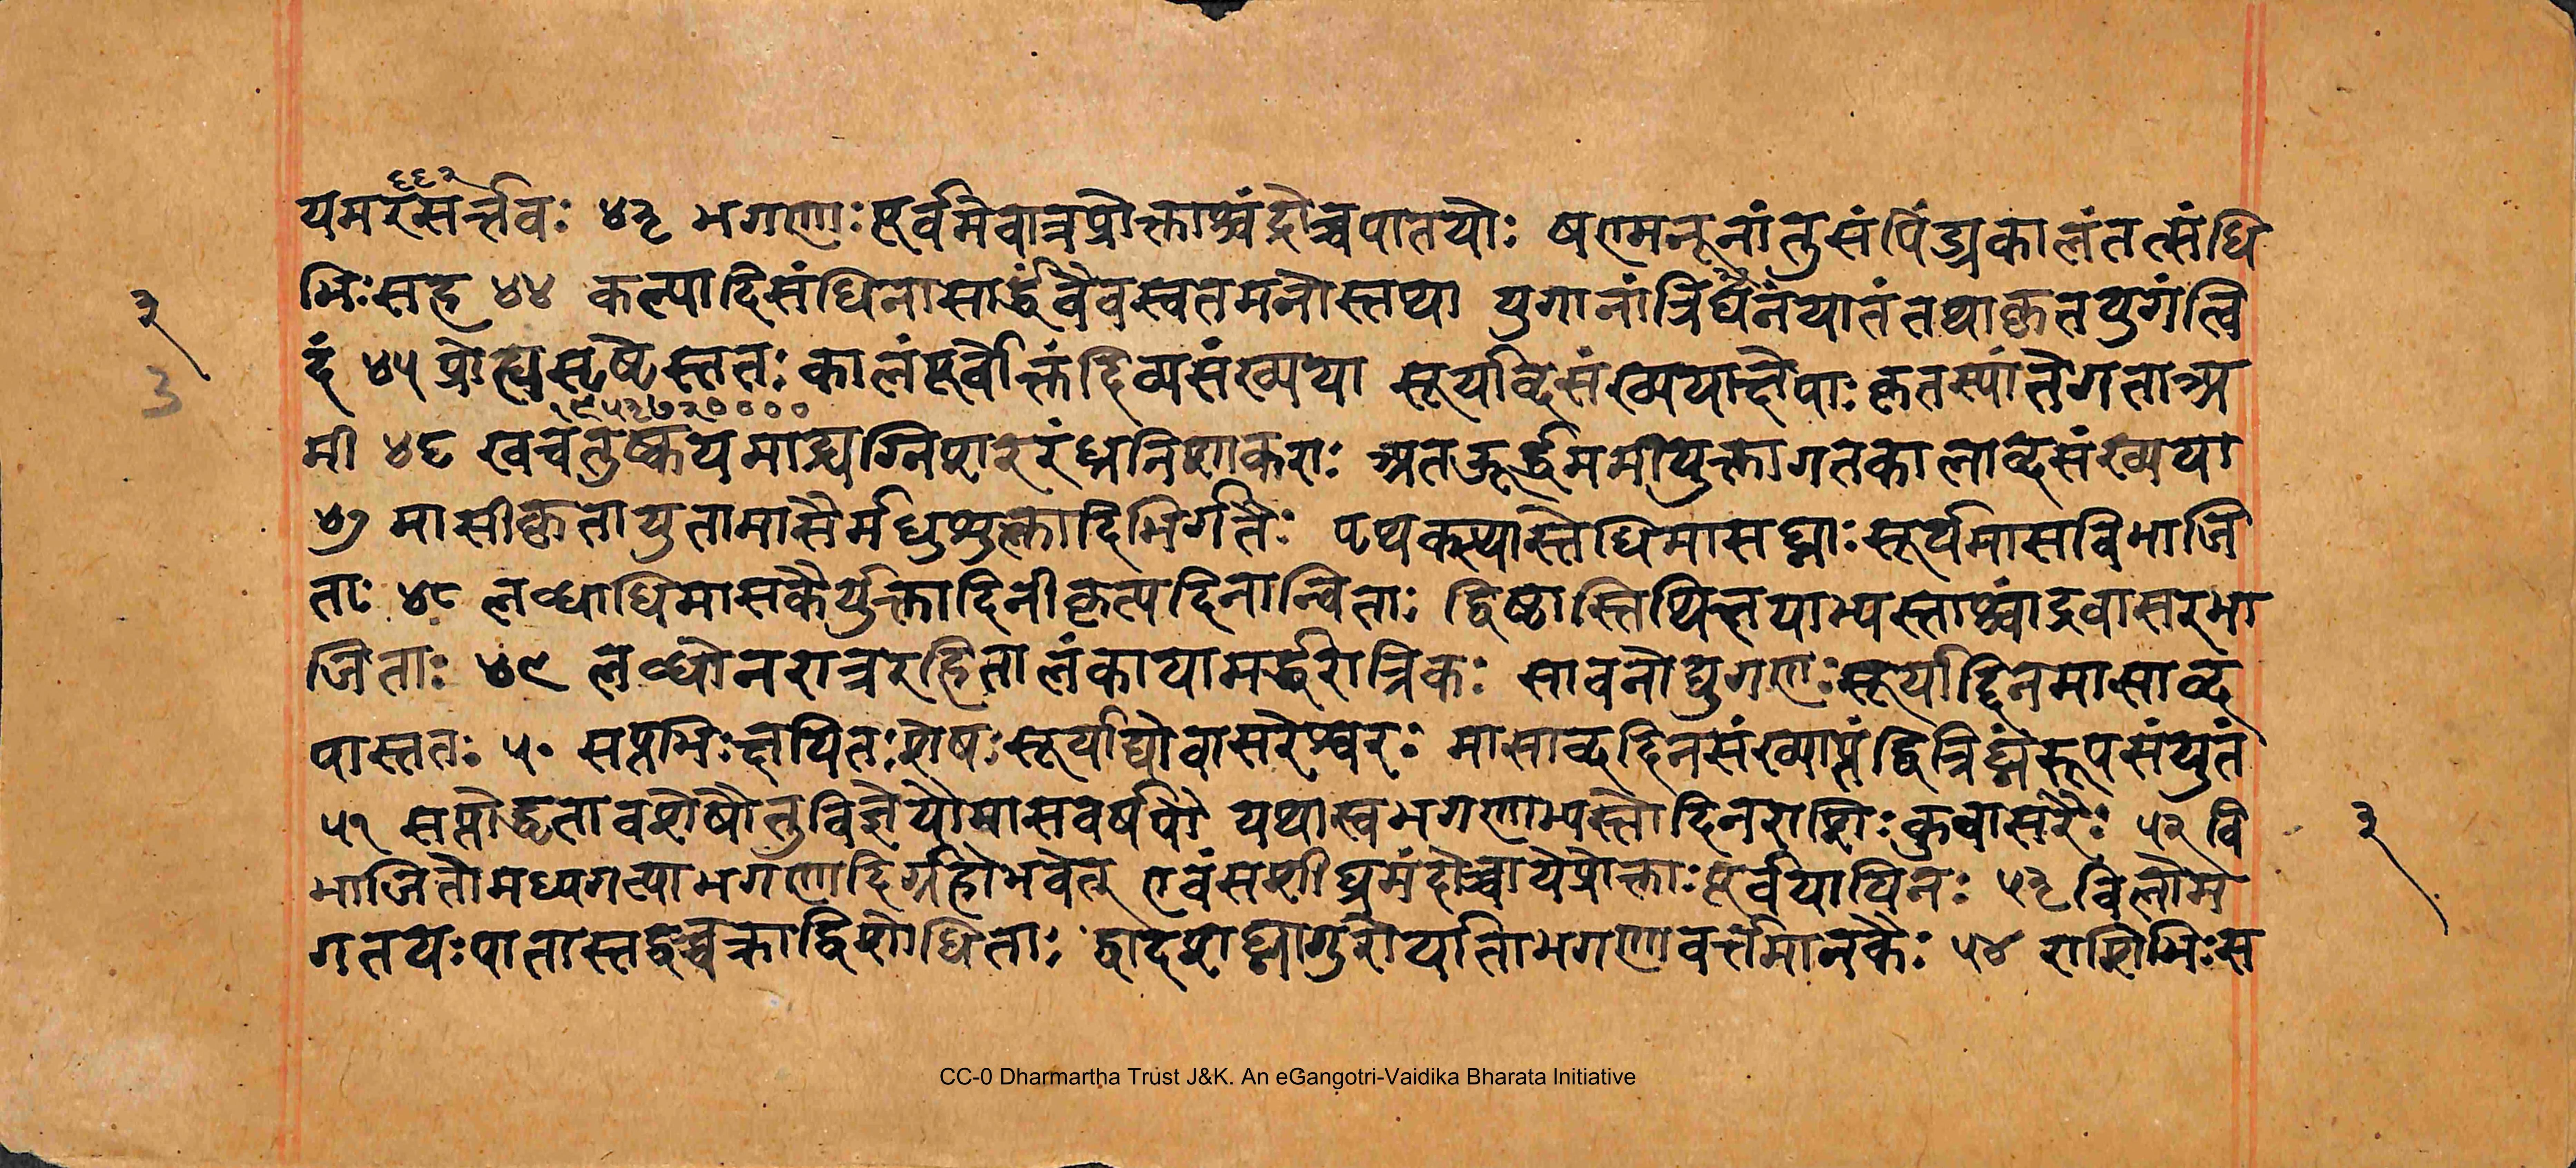 ६६२
यमरसर्त्तवः ४३ भगणाः पूर्वमेवात्रप्रोक्ताश्चंद्रोच्चपातयोः षण्मनूनांतुसंपिंड्यकालंतत्संधि
भिः सह ४४ कल्पादिसंधिनासार्द्धंवैवस्वतमनोस्तथा युगानांत्रिघनंयातंतथाकृतयुगंत्वि
दं ४५ प्रोह्यसृष्टेस्ततः कालंपूर्वोक्तंदिव्यसंख्यया सूर्याब्दसंख्ययाज्ञेयाः कृतस्यांतेगताअ
१९५३७२००००
मी ४६ खचतुष्कयमाद्र्यग्निशररंध्रनिशाकराः अतऊर्द्ध्वममीयुक्तागतकालाब्दसंख्यया
४७ मासीकृतायुतामासैर्मधुशुक्लादिभिर्गतैः पृथक्स्थास्तेधिमासघ्नाः सूर्यमासविभाजि
ताः ४८ लब्धाधिमासकैर्युक्तादिनीकृत्यदिनान्विताः द्विष्ठास्तिथिक्षयाभ्यस्ताश्चांद्रवासरभा
जिताः ४९ लब्धोनरात्ररहितालंकायामर्द्धरात्रिकः सावनोद्युगणः सूर्याद्दिनमासाब्द
पास्ततः ५० सप्तभिः क्षयितः शेषः सूर्याद्योवासरेश्वरः मासाब्ददिनसंख्याप्तंद्वित्रिघ्नंरूपसंयुतं
५१ सप्तोद्धृतावशेषौतुविज्ञेयौमासवर्षपौ यथास्वभगणाभ्यस्तोदिनराशिः कुवासरैः ५२ वि
भाजितोमध्यगत्याभगणादिर्ग्रहोभवेत् एवंसशीघ्रमंदोच्चायेप्रोक्ताः पूर्वयायिनः ५३ विलोम
गतयः पातास्तद्वच्चक्राद्विशोधिताः द्वादशघ्नागुरोर्याताभगणावर्त्तमानकैः ५४ राशिभिः स
३
3
३
CC-0 Dharmartha Trust J&K. An eGangotri-Vaidika Bharata Initiative